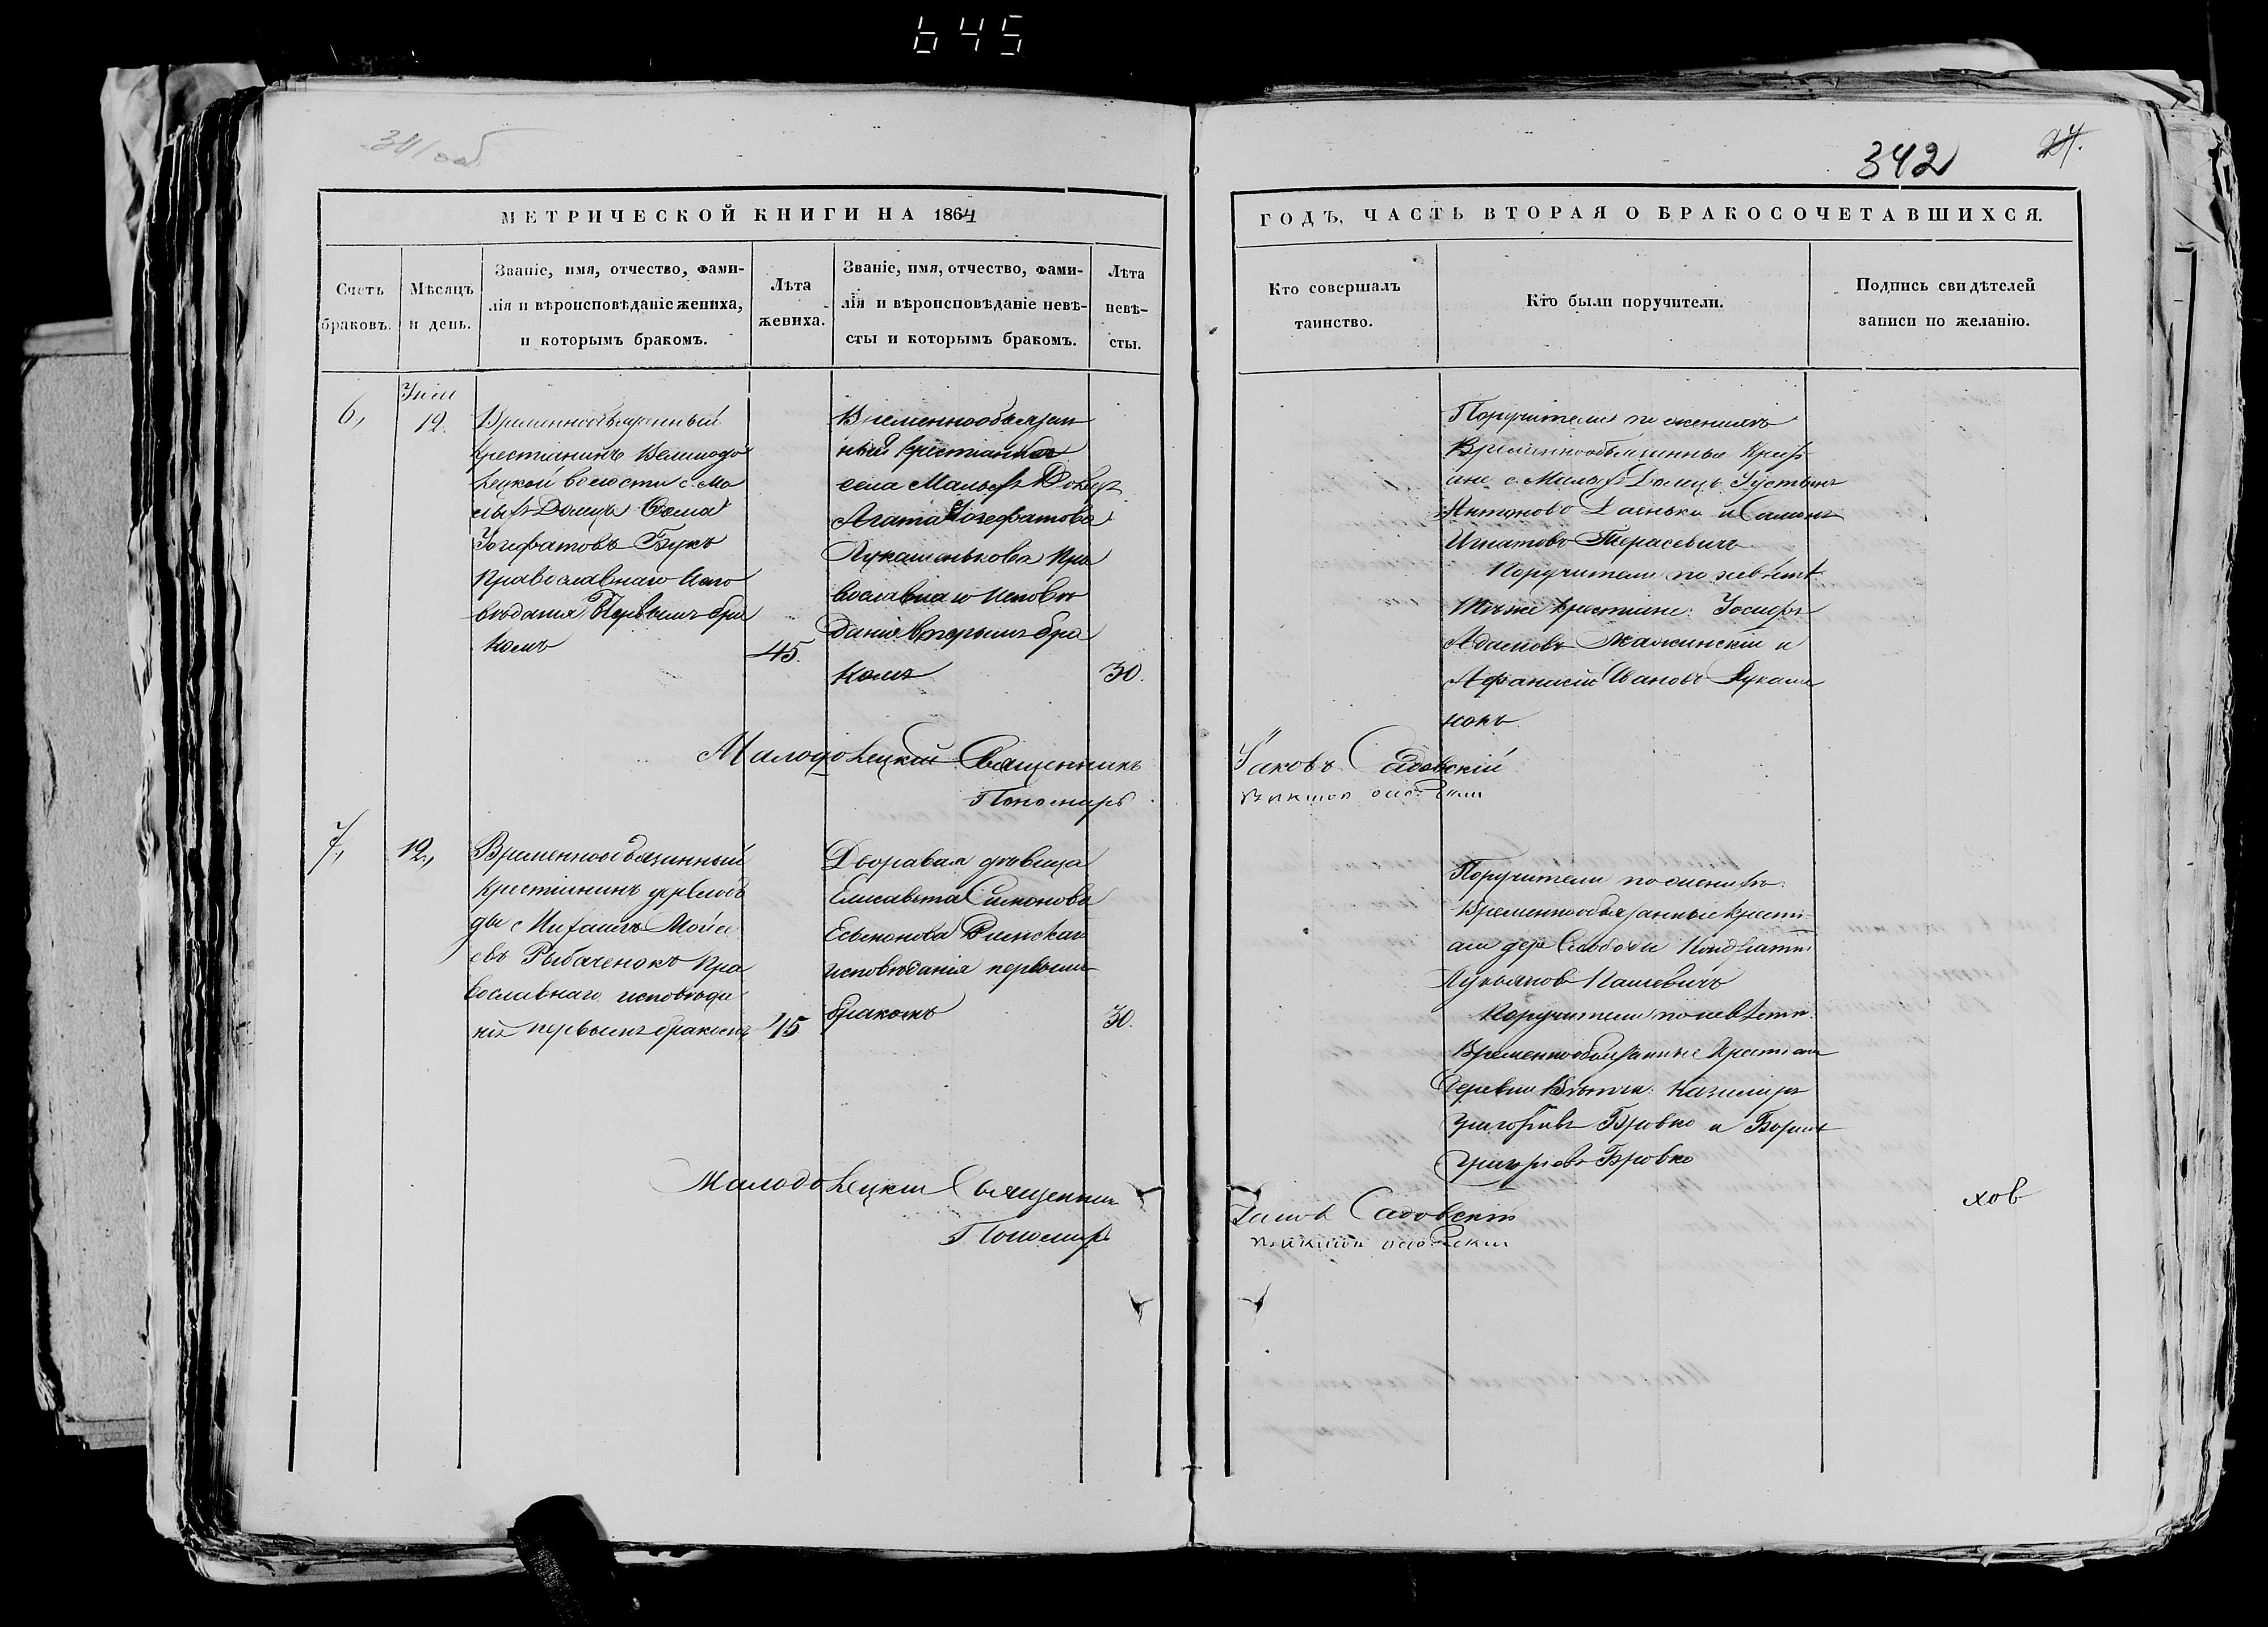 645
341 об
342
24.
МЕТРИЧЕСКОЙ КНИГИ НА 1864
ГОДЪ, ЧАСТЬ ВТОРАЯ О БРАКОСОЧЕТАВШИХСЯ.
Счетъ
браковъ.
Мѣсяцъ
и день.
Званіе, имя, отчество, фами-
лія и вѣроисповѣданіе жениха,
и которымъ бракомъ.
Лѣта
жениха.
Званіе, имя, отчество, фами-
лія и вѣроисповѣданіе невѣ-
сты и которымъ бракомъ.
Лѣта
невѣ-
сты.
Кто совершалъ
таинство.
Кто были поручители.
Подпись свидѣтелей
записи по желанію.
6,
12.
Временнообязанный
Крестіянинъ Великодо
лецкой волости с. Ма
лыхъ Долецъ Ѳома
Іозефатовъ Букъ
Православнаго Испо
вѣданія Первымъ бра
комъ
45.
Временнообязан
ный крестіянка
села Малыхъ Долецъ
Агата Іозефатова
Лукашенькова Пра
вославнаго Исповѣ
данія вторымъ бра
комъ
30.
Поручители по женихѣ
Временнообязанные Крестя
не с. Малыхъ Долецъ Іустынъ
Антоновъ и
Игнатовъ Тарасевичъ
Поручители по невѣстѣ
Тѣ же крестіяне: Іосифъ
Адамовъ и
Афанасій Ивановъ Лукаше
нокъ
Малодолецкій Священникъ
Іаковъ Садовскій
Пономарь
7,
12,
Временнообязанный
Крестіянинъ дер Слобо
ды Михаилъ Моисе
евъ Рыбаченокъ Пра
вославнаго исповѣда
нія первымъ бракомъ
45
Дворавая дѣвица
Елисавета Симонова
Римскаго
исповѣданія первымъ
бракомъ
30.
Поручители по женихѣ:
Временнообязанные крестія
ане дер Слободы Кондратій
Лукьяновъ Пашевичъ
Поручители по невѣстѣ:
Временнообязанные Крестіане
Деревни Казимиръ
Григорьевъ Бровко и Борисъ
Григорьевъ Бровко
Малодолецкій Священникъ
Іаковъ Садовскій
Пономарь
хов